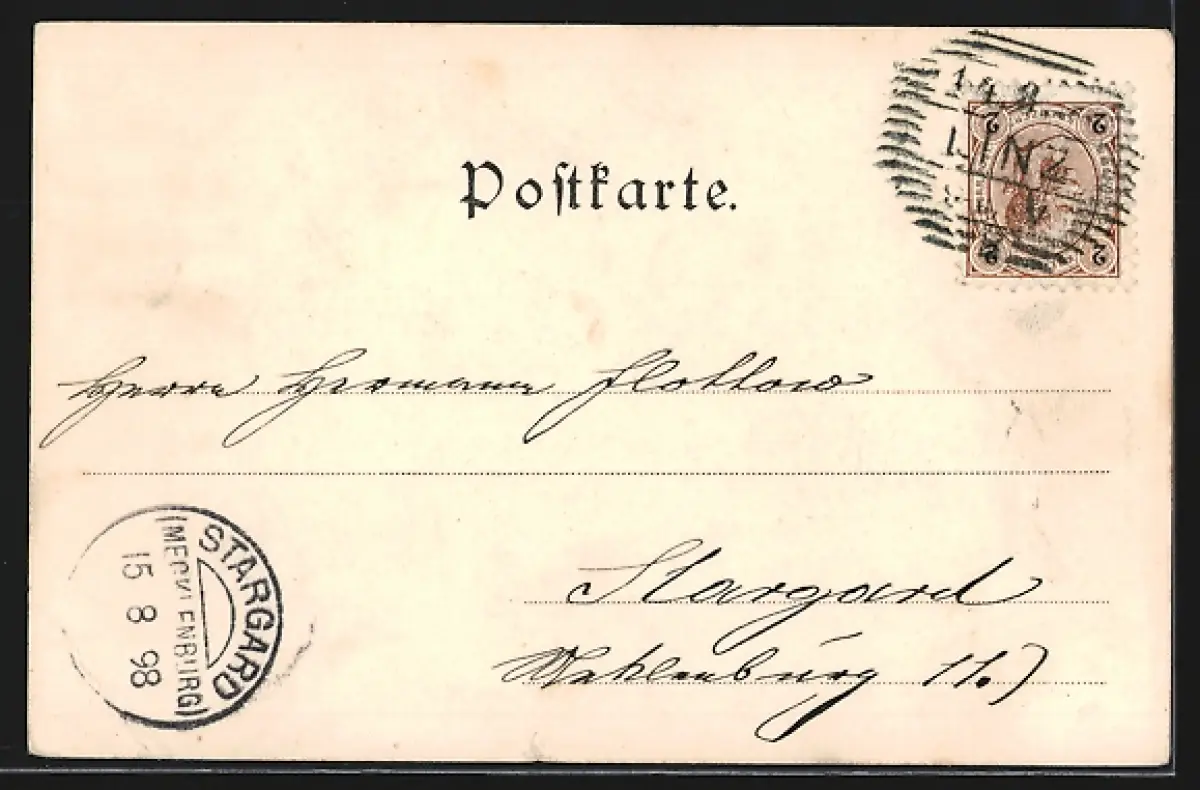 Postkarte.
LINZ
2 2
2 2
Herrn Hermann Flottow
Stargard
Meklenburg
STARGARD
(MECKLENBURG)
15 8 98